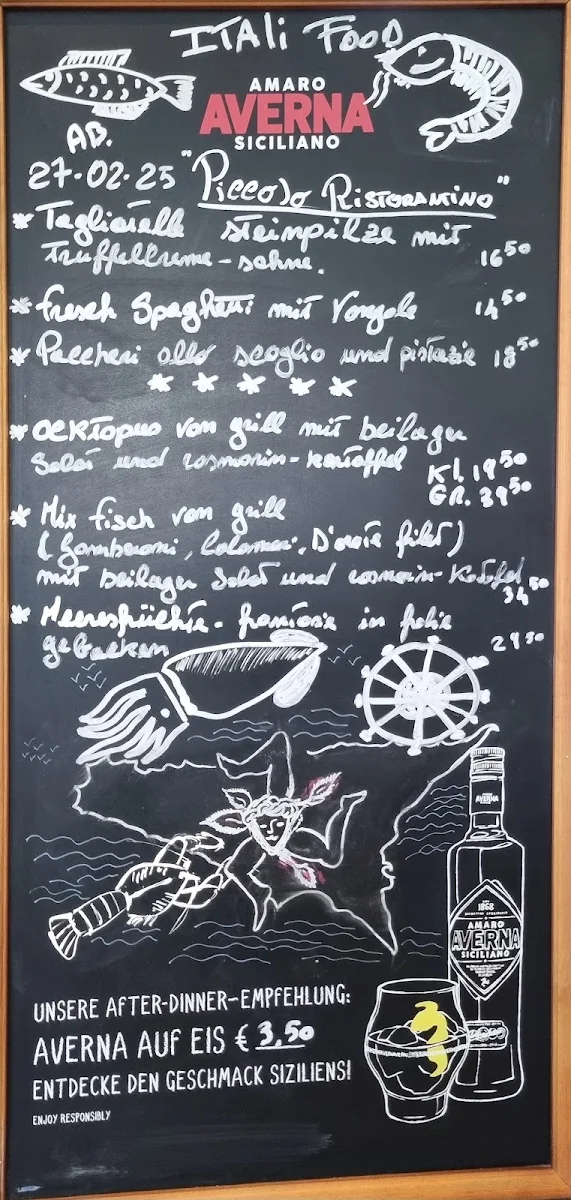 ITALi FOOD
AMARO
AVERNA
SICILIANO
AB.
27-02-25 "Piccolo RISTORANTINO"
* Tagliatelle steinpilze mit
Trüffelcreme-sahne. 16⁵⁰
* fresch Spaghetti mit Vongole 14⁵⁰
* Paccheri allo scoglio und pistazie 18⁵⁰
* * * * *
* OCKTOPUS von grill mit beilagen
Salat und rosmarin-kartoffel Kl. 19⁵⁰
GR. 39⁵⁰
* Mix fisch von grill
(Gamberoni, Calamari, D'orate filet)
mit beilagen Salat und rosmarin-Kartoffel
34⁵⁰
* Meeresfrüchte-fantasie in folie
gebacken 29⁵⁰
AVERNA
1868
AMARO
AVERNA
SICILIANO
UNSERE AFTER-DINNER-EMPFEHLUNG:
AVERNA AUF EIS € 3,50
ENTDECKE DEN GESCHMACK SIZILIENS!
ENJOY RESPONSIBLY